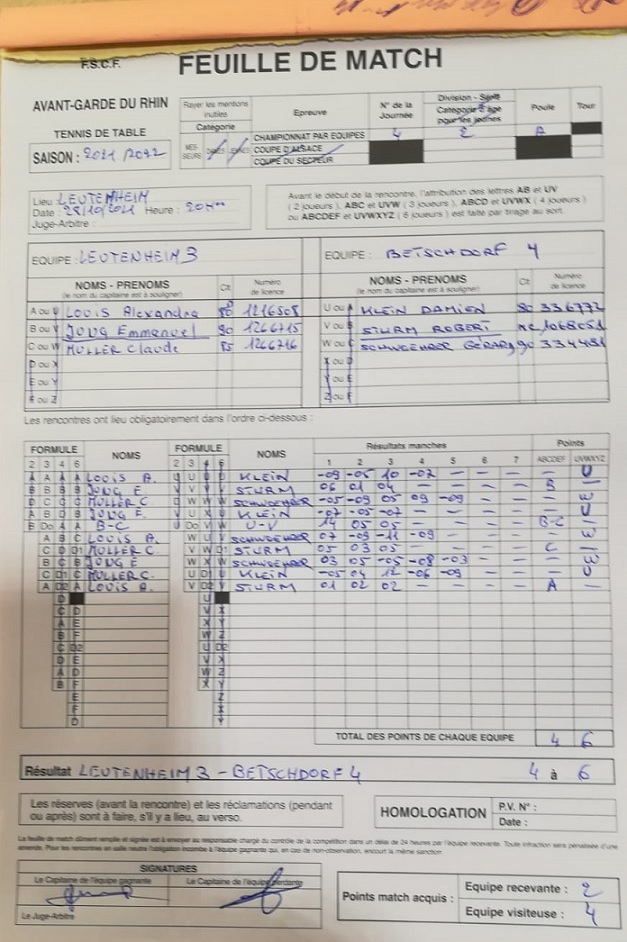 F.S.C.F.
FEUILLE DE MATCH
AVANT-GARDE DU RHIN
TENNIS DE TABLE
SAISON : 2021/2022
Rayer les mentions inutiles
Catégorie
Epreuve
N° de la Journée
Division - Série
Catégorie d'âge pour les jeunes
Poule
Tour
MES-SIEURS
CHAMPIONNAT PAR EQUIPES 4 2 A
COUPE D'ALSACE
COUPE DU SECTEUR
Lieu LEUTENHEIM
Date : 28/10/2021 Heure : 20H00
Juge-Arbitre :
Avant le début de la rencontre, l'attribution des lettres AB et UV
( 2 joueurs ), ABC et UVW ( 3 joueurs ), ABCD et UVWX ( 4 joueurs )
ou ABCDEF et UVWXYZ ( 6 joueurs ) est faite par tirage au sort.
EQUIPE : LEUTENHEIM 3 EQUIPE : BETSCHDORF 4
NOMS - PRENOMS Numéro de licence NOMS - PRENOMS Numéro de licence
(le nom du capitaine est à souligner) (le nom du capitaine est à souligner)
A ou U LOUIS Alexandre 80 1216508 U ou A KLEIN DAMIEN 80 336772
B ou V JUNG Emmanuel 90 1266715 V ou B STURM ROBERT 1068051
C ou W MULLER Claude 85 1266716 W ou C SCHWOEHRER GÉRARD 90 334481
D ou X X ou D
E ou Y Y ou E
F ou Z Z ou F
Les rencontres ont lieu obligatoirement dans l'ordre ci-dessous :
FORMULE NOMS FORMULE NOMS Résultats manches Points
2 3 4 6 2 3 4 6 1 2 3 4 5 6 7 ABCDEF UVWXYZ
LOUIS A. KLEIN -09 -05 10 -02 - - - U
JUNG E. STURM 06 01 04 - - - - B -
MULLER C. SCHWOEHRER -05 -09 05 09 -09 - - - W
JUNG E. KLEIN -07 -05 -07 - - - - - U
B-C U-V 14 05 05 - - - - B-C -
LOUIS A. SCHWOEHRER 07 -09 -11 -09 - - - - W
MULLER C. STURM 05 03 05 - - - - C -
JUNG E SCHWOEHRER 03 05 -05 -08 -03 - - - W
MULLER C. KLEIN -05 04 12 -06 -09 - - - U
LOUIS A. STURM 01 02 02 - - - - A -
TOTAL DES POINTS DE CHAQUE EQUIPE 4 6
Résultat LEUTENHEIM 3 - BETSCHDORF 4 4 à 6
Les réserves (avant la rencontre) et les réclamations (pendant
ou après) sont à faire, s'il y a lieu, au verso.
HOMOLOGATION
P.V. N° :
Date :
La feuille de match dûment remplie et signée est à envoyer au responsable chargé du contrôle de la compétition dans un délai de 24 heures par l'équipe recevante. Toute infraction sera pénalisée d'une
amende. Pour les rencontres en salle neutre l'obligation incombe à l'équipe gagnante qui, en cas de non-observation, encourt la même sanction.
SIGNATURES
Le Capitaine de l'équipe gagnante Le Capitaine de l'équipe perdante
Le Juge-Arbitre
Points match acquis :
Equipe recevante : 2
Equipe visiteuse : 4